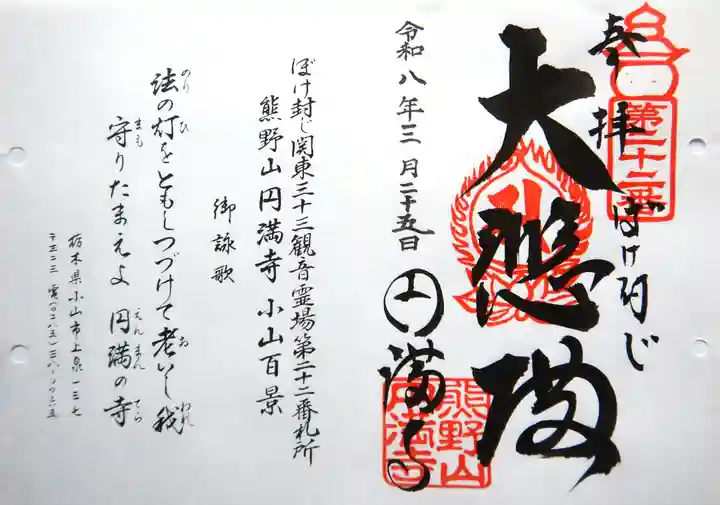 奉拝
第二十二番
ぼけ封じ
大悲殿
円満寺
熊野山
円満寺
令和八年三月二十五日
ぼけ封じ関東三十三観音霊場第二十二番札所
熊野山円満寺 小山百景
御詠歌
法の灯をともしつづけて老いし我
のり ひ お われ
守りたまえよ 円満の寺
まも えんまん てら
栃木県小山市上泉一三七